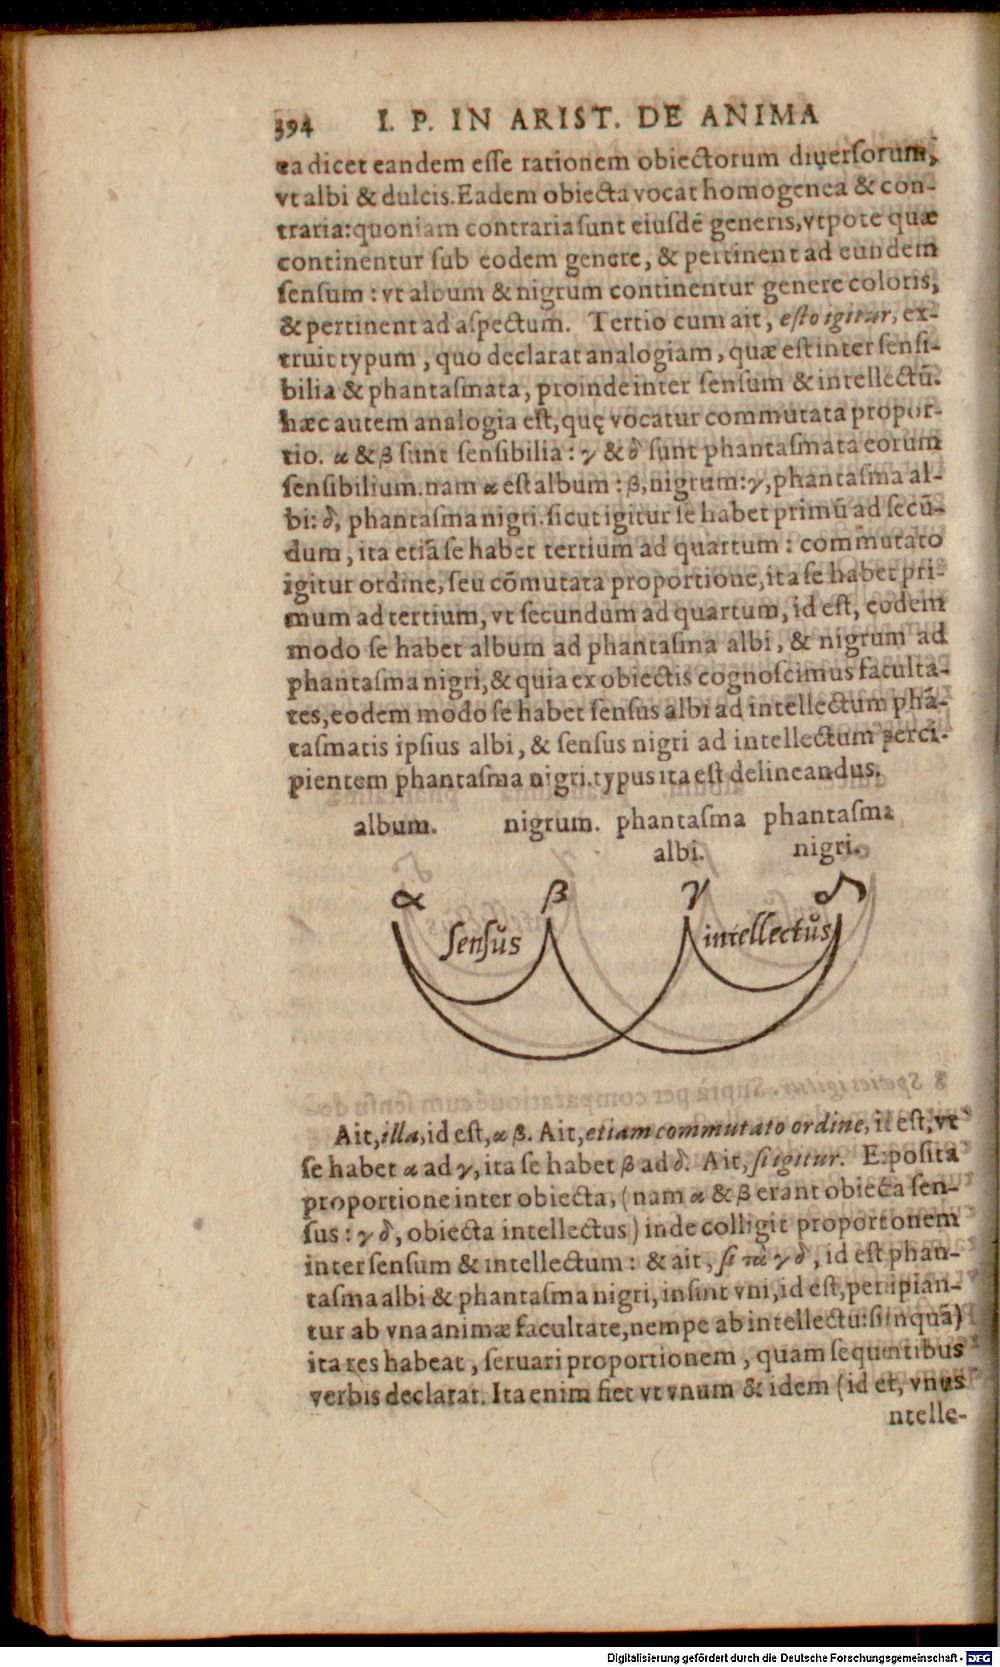 394 I. P. IN ARIST. DE ANIMA
ea dicet eandem esse rationem obiectorum diuersorum,
vt albi & dulcis. Eadem obiecta vocat homogenea & con-
traria: quoniam contraria sunt eiusdē generis, vtpote quæ
continentur sub eodem genere, & pertinent ad eundem
sensum: vt album & nigrum continentur genere coloris,
& pertinent ad aspectum. Tertio cum ait, esto igitur, ex-
truit typum, quo declarat analogiam, quæ est inter sensi-
bilia & phantasmata, proinde inter sensum & intellectū.
hæc autem analogia est, quę vocatur commutata propor-
tio. α & β sunt sensibilia: γ & δ sunt phantasmata eorum
sensibilium. nam α est album: β, nigrum: γ, phantasma al-
bi: δ, phantasma nigri. sicut igitur se habet primū ad secū-
dum, ita etiā se habet tertium ad quartum: commutato
igitur ordine, seu cōmutata proportione, ita se habet pri-
mum ad tertium, vt secundum ad quartum, id est, eodem
modo se habet album ad phantasma albi, & nigrum ad
phantasma nigri, & quia ex obiectis cognoscimus faculta-
tes, eodem modo se habet sensus albi ad intellectum phā-
tasmatis ipsius albi, & sensus nigri ad intellectum perci-
pientem phantasma nigri. typus ita est delineandus.
album. nigrum. phantasma phantasma
albi. nigri.
α β γ δ
sensus intellectus
Ait, illa, id est, α β. Ait, etiam commutato ordine, id est, vt
se habet α ad γ, ita se habet β ad δ. Ait, si igitur. Exposita
proportione inter obiecta, (nam α & β erant obiecta sen-
sus: γ δ, obiecta intellectus) inde colligit proportionem
inter sensum & intellectum: & ait, si τὰ γ δ, id est phan-
tasma albi & phantasma nigri, insint vni, id est, percipian-
tur ab vna animæ facultate, nempe ab intellectu: si (inquā)
ita res habeat, seruari proportionem, quam sequentibus
verbis declarat. Ita enim fiet vt vnum & idem (id est, vnus
ntelle-
Digitalisierung gefördert durch die Deutsche Forschungsgemeinschaft - DFG